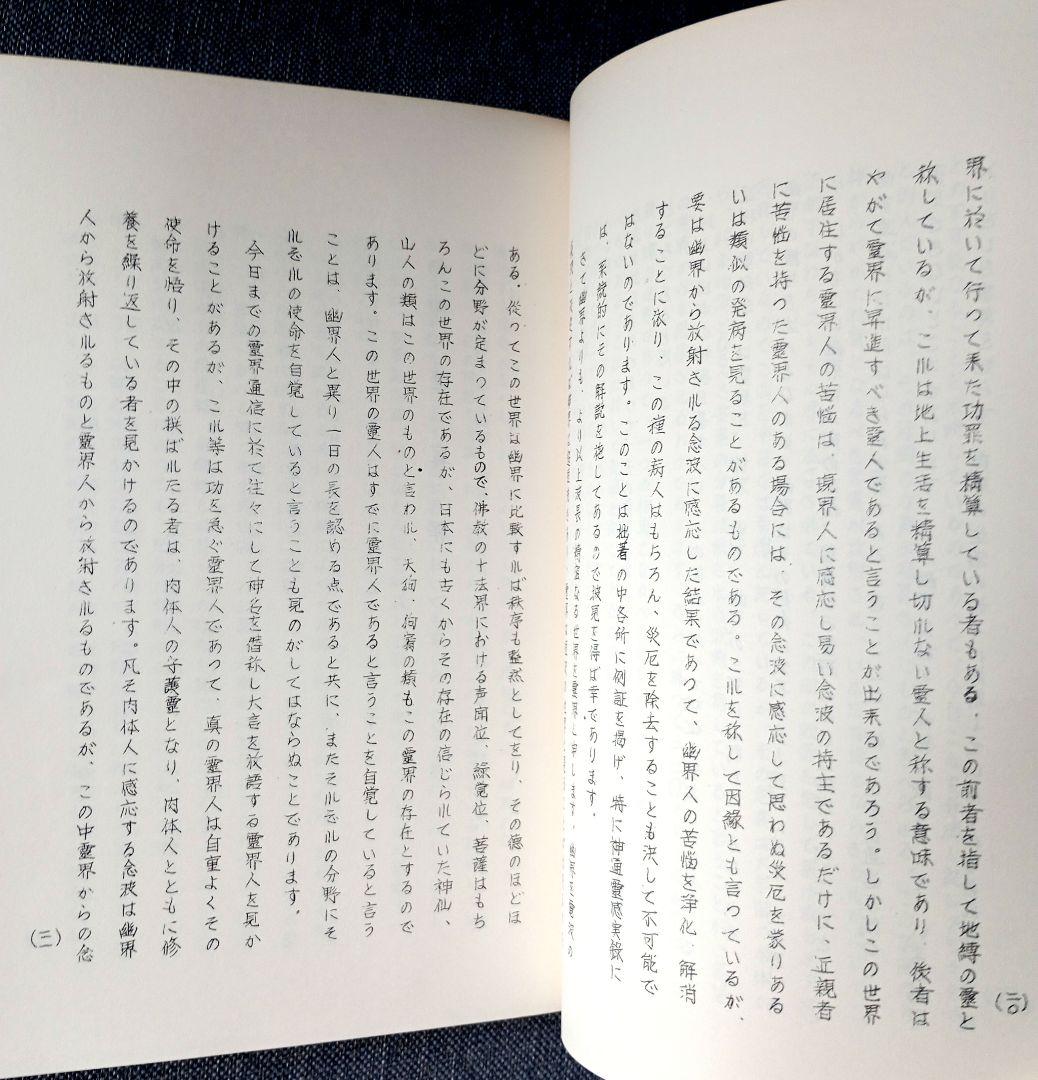 界に於いて行って来た功罪を精算している者もある．この前者を指して地縛の霊と
称しているが、これは地上生活を精算し切れない霊人と称する意味であり、後者は
やがて霊界に昇進すべき霊人であると言うことが出来るであろう。しかしこの世界
に居住する霊界人の苦悩は、現界人に感応し易い念波の持主であるだけに、近親者
に苦悩を持った霊界人のある場合には、その念波に感応して思わぬ災厄を蒙りある
いは類似の発病を見ることがあるものである。これを称して因縁とも言つているが、
要は幽界から放射される念波に感応した結果であつて、幽界人の苦悩を浄化、解消
することに依り、この種の病人はもちろん、災厄を除去することも決して不可能で
はないのであります。このことは拙著の中各所に例証を掲げ、特に神通霊感実録に
は、系統的にその解説を施してあるので披見を得ば幸であります。
さて幽界よりも、より以上成長の精密なる世界を霊界と申します．
(二〇)
ある．従つてこの世界は幽界に比較すれば秩序も整然としてをり、その徳のほどほ
どに分野が定まつているもので、佛教の十法界における声聞位、縁覚位、菩薩はもち
ろんこの世界の存在であるが、日本にも古くからその存在の信じられていた神仙、
山人の類はこの世界のものと言われ、天狗、狗賓の類もこの霊界の存在とするので
あります。この世界の霊人はすでに霊界人であると言うことを自覚していると言う
ことは、幽界人と異り一日の長を認める点であると共に、またそれぞれの分野にそ
れぞれの使命を自覚していると言うことも見のがしてはならぬことであります。
今日までの霊界通信に於て往々にして神名を僭称し大言を放語する霊界人を見か
けることがあるが、これ等は功を急ぐ霊界人であつて、真の霊界人は自重よくその
使命を悟り、その中の撰ばれたる者は、肉体人の守護霊となり、肉体人とともに修
養を繰り返している者を見かけるのであります。凡そ肉体人に感応する念波は幽界
人から放射されるものと霊界人から放射されるものであるが、この中霊界からの念